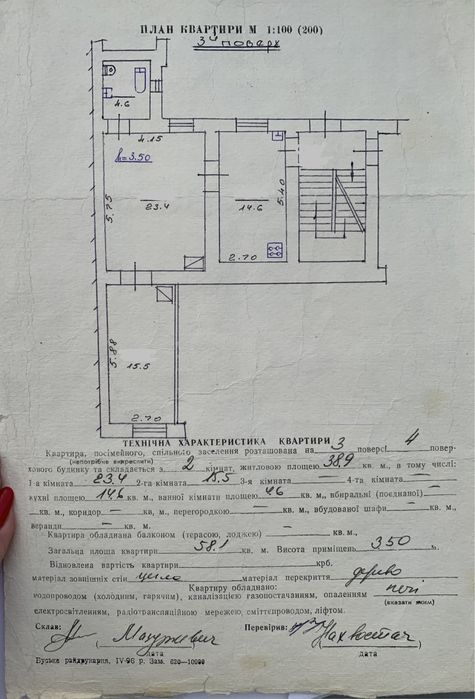 ПЛАН КВАРТИРИ М 1:100 (200)
3й поверх
4.6
4.15
h=3.50
5.75
23.4
14.6
5.40
2.70
5.88
15.5
2.70
ТЕХНІЧНА ХАРАКТЕРИСТИКА КВАРТИРИ
Квартира, посімейного, спільного заселення розташована на 3 поверсі 4 повер-
(непотрібне викреслити)
хового будинку та складається з 2 кімнат, житловою площею 38,9 кв. м., в тому числі:
1-а кімната 23.4 2-га кімната 15.5 3-я кімната — 4-та кімната —
кухні площею 14,6 кв. м., ванної кімнати площею 4,6 кв. м., вбиральні (поєднаної) —
кв. м., коридор — кв. м., перегородкою — кв. м., вбудованої шафи — кв. м.,
веранди — кв. м.
Квартира обладнана балконом (терасою, лоджєю) кв. м.,
Загальна площа квартири 58.1 кв. м. Висота приміщень 3.50
Відновлена вартість квартири крб.
матеріал зовнішніх стін цегла матеріал перекриття дерево
Квартиру обладнано:
водопроводом (холодним, гарячим), каналізацією газопостачанням, опаленням печі
(вказати яким)
електросвітленням, радіотрансляційною мережею, сміттєпроводом, ліфтом.
Склав: Мазуркевич Перевірив:
дата дата
Буська райдрукарня. IV-96 р. Зам. 620—10000